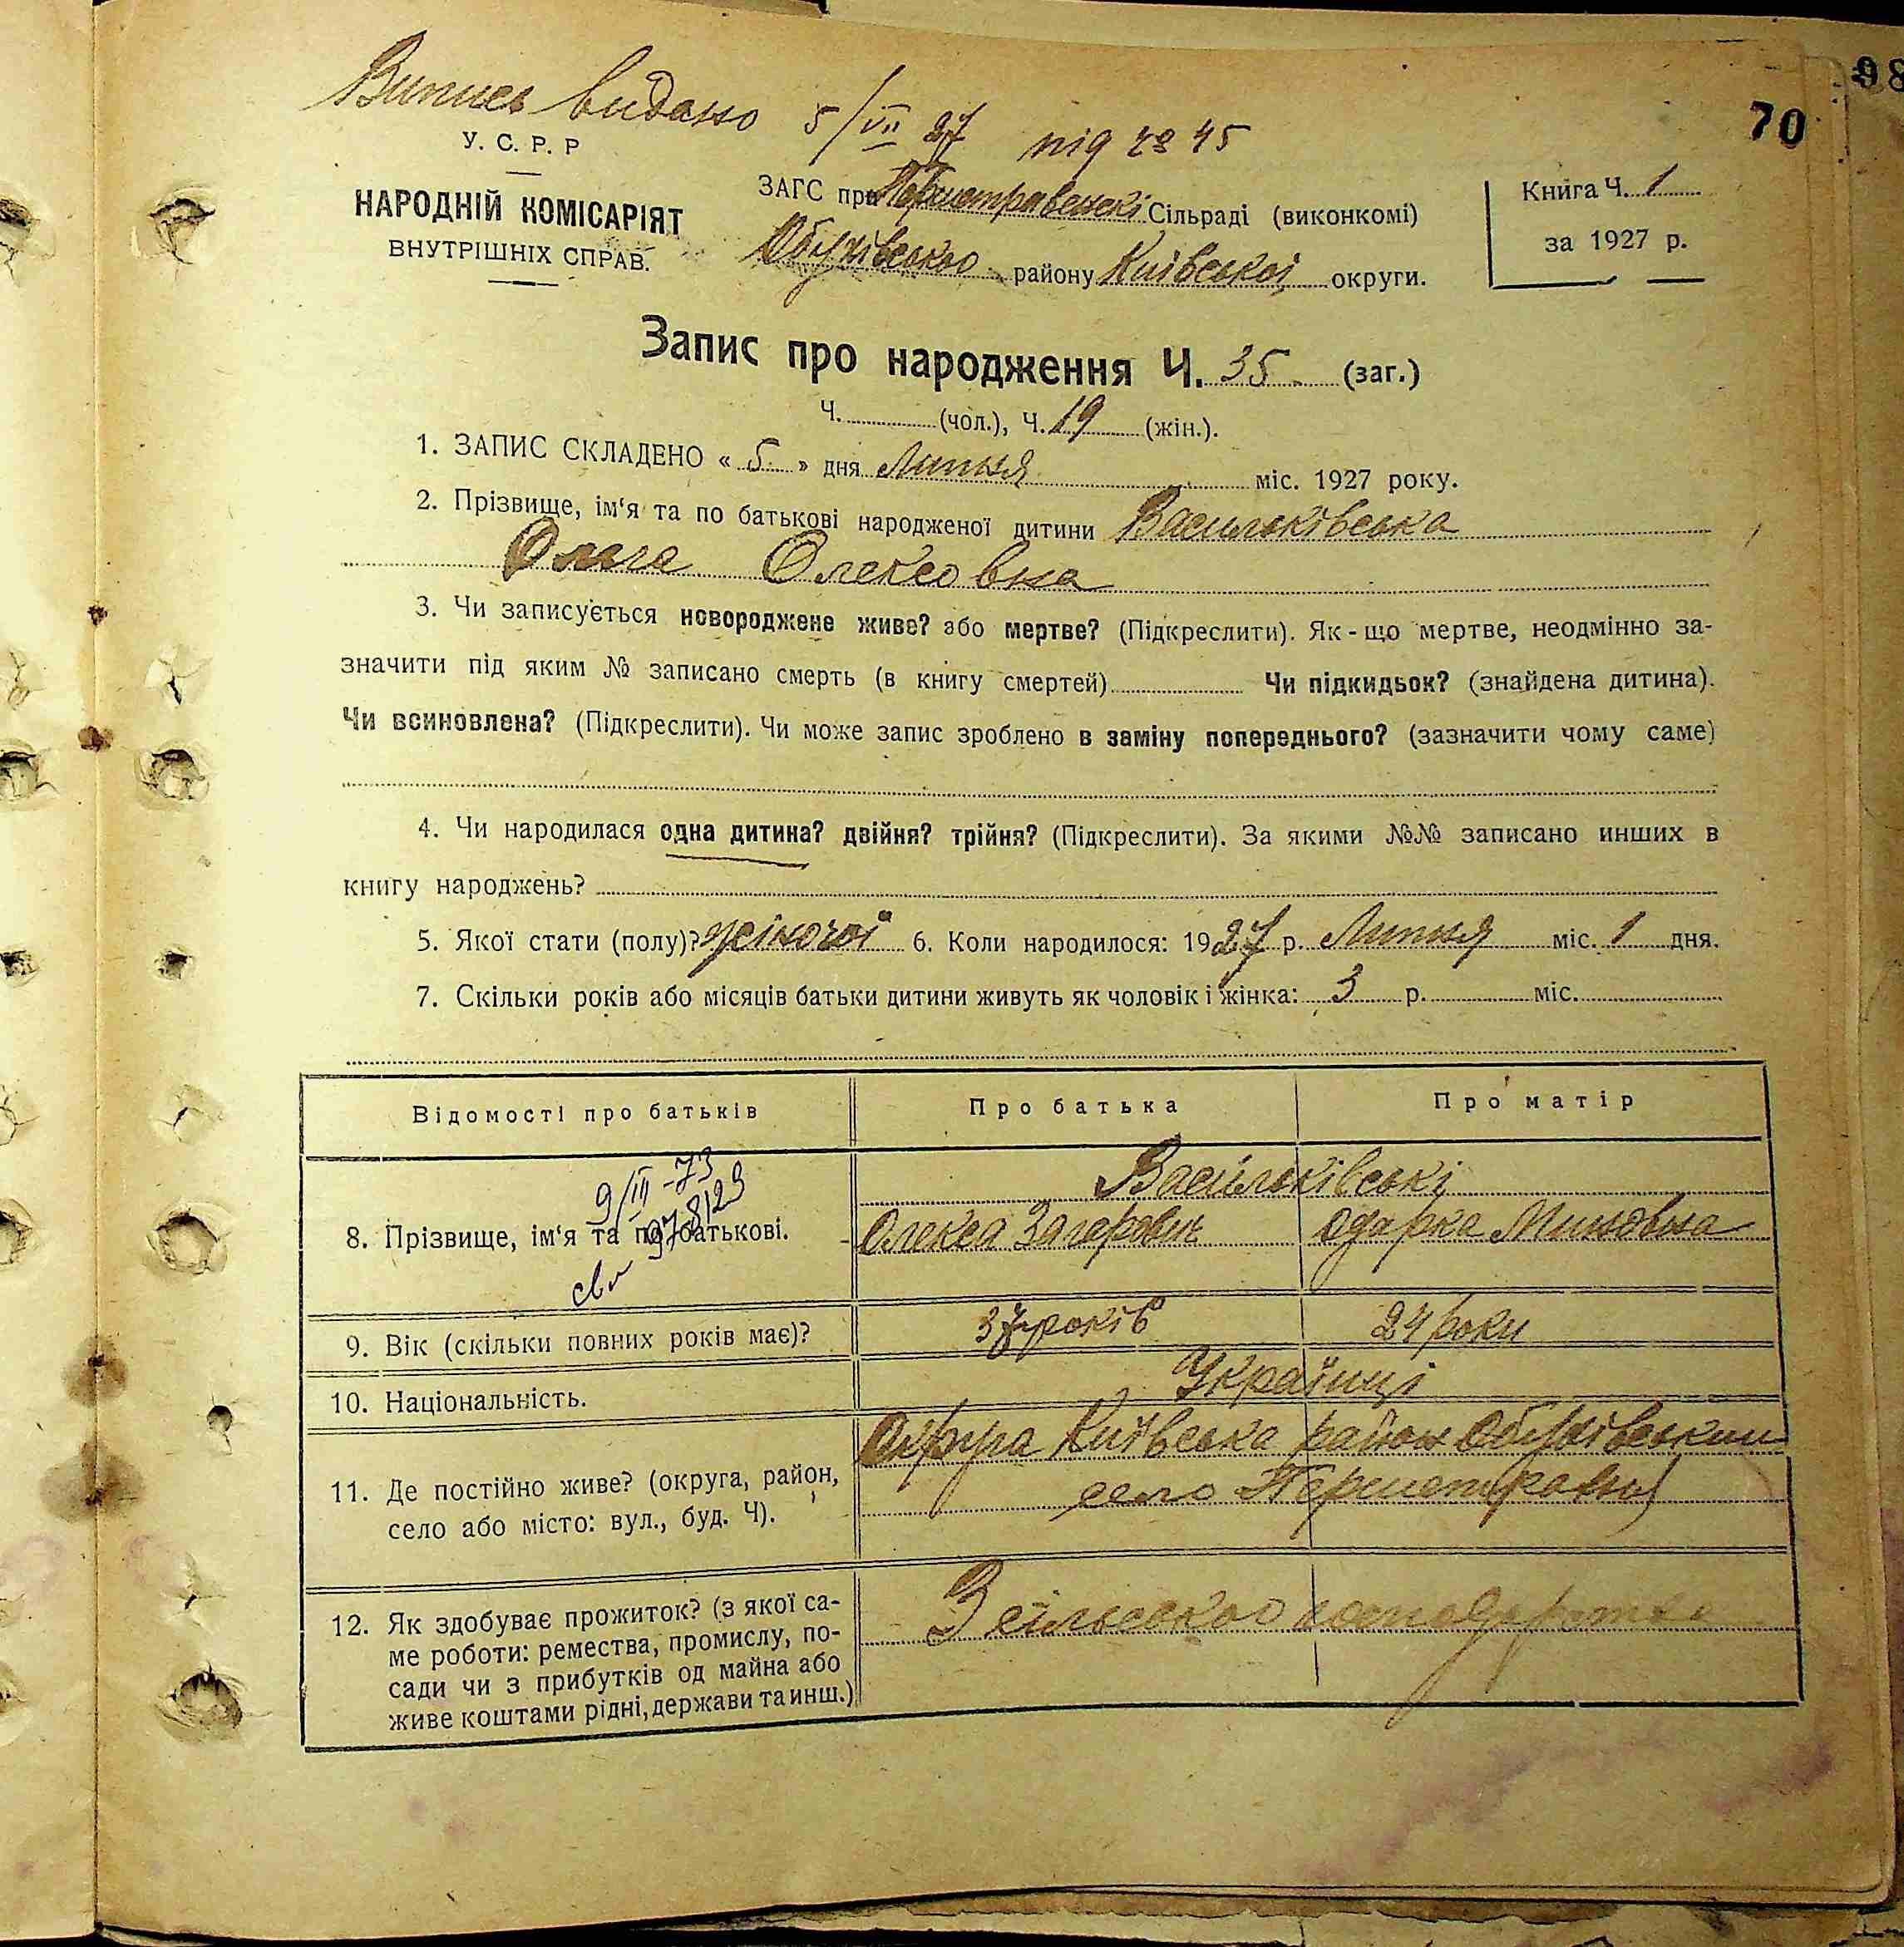 98
70
Випись видано 5/VII 27 під № 45
У. С. Р. Р
НАРОДНІЙ КОМІСАРІЯТ
ВНУТРІШНІХ СПРАВ.
ЗАГС при Сільраді (виконкомі)
Обухівського району Київської округи.
Книга Ч. 1
за 1927 р.
Запис про народження Ч. 35 (заг.)
Ч. (чол.), Ч. 19 (жін.).
1. ЗАПИС СКЛАДЕНО « 5 » дня Липня міс. 1927 року.
2. Прізвище, ім‘я та по батькові народженої дитини Васильківська
Ольга Олексовна
3. Чи записується новороджене живе? або мертве? (Підкреслити). Як - що мертве, неодмінно за-
значити під яким № записано смерть (в книгу смертей) Чи підкидьок? (знайдена дитина).
Чи всиновлена? (Підкреслити). Чи може запис зроблено в заміну попереднього? (зазначити чому саме)
4. Чи народилася одна дитина? двійня? трійня? (Підкреслити). За якими №№ записано инших в
книгу народжень?
5. Якої стати (полу)? жіночої 6. Коли народилося: 1927 р. Липня міс. 1 дня.
7. Скільки років або місяців батьки дитини живуть як чоловік і жінка: 3 р. міс.
Відомості про батьків Про батька Про матір
9/III -73
978129
8. Прізвище, ім‘я та по батькові.
Васильківські
Олекса Захарович Одарка Миновна
9. Вік (скільки повних років має)? 37 років 24 роки
10. Національність. Українці
11. Де постійно живе? (округа, район,
село або місто: вул., буд. Ч).
Округа Київська район Обухівський
село
12. Як здобуває прожиток? (з якої са-
ме роботи: ремества, промислу, по-
сади чи з прибутків од майна або
живе коштами рідні, держави та инш.)
З сільського господарства